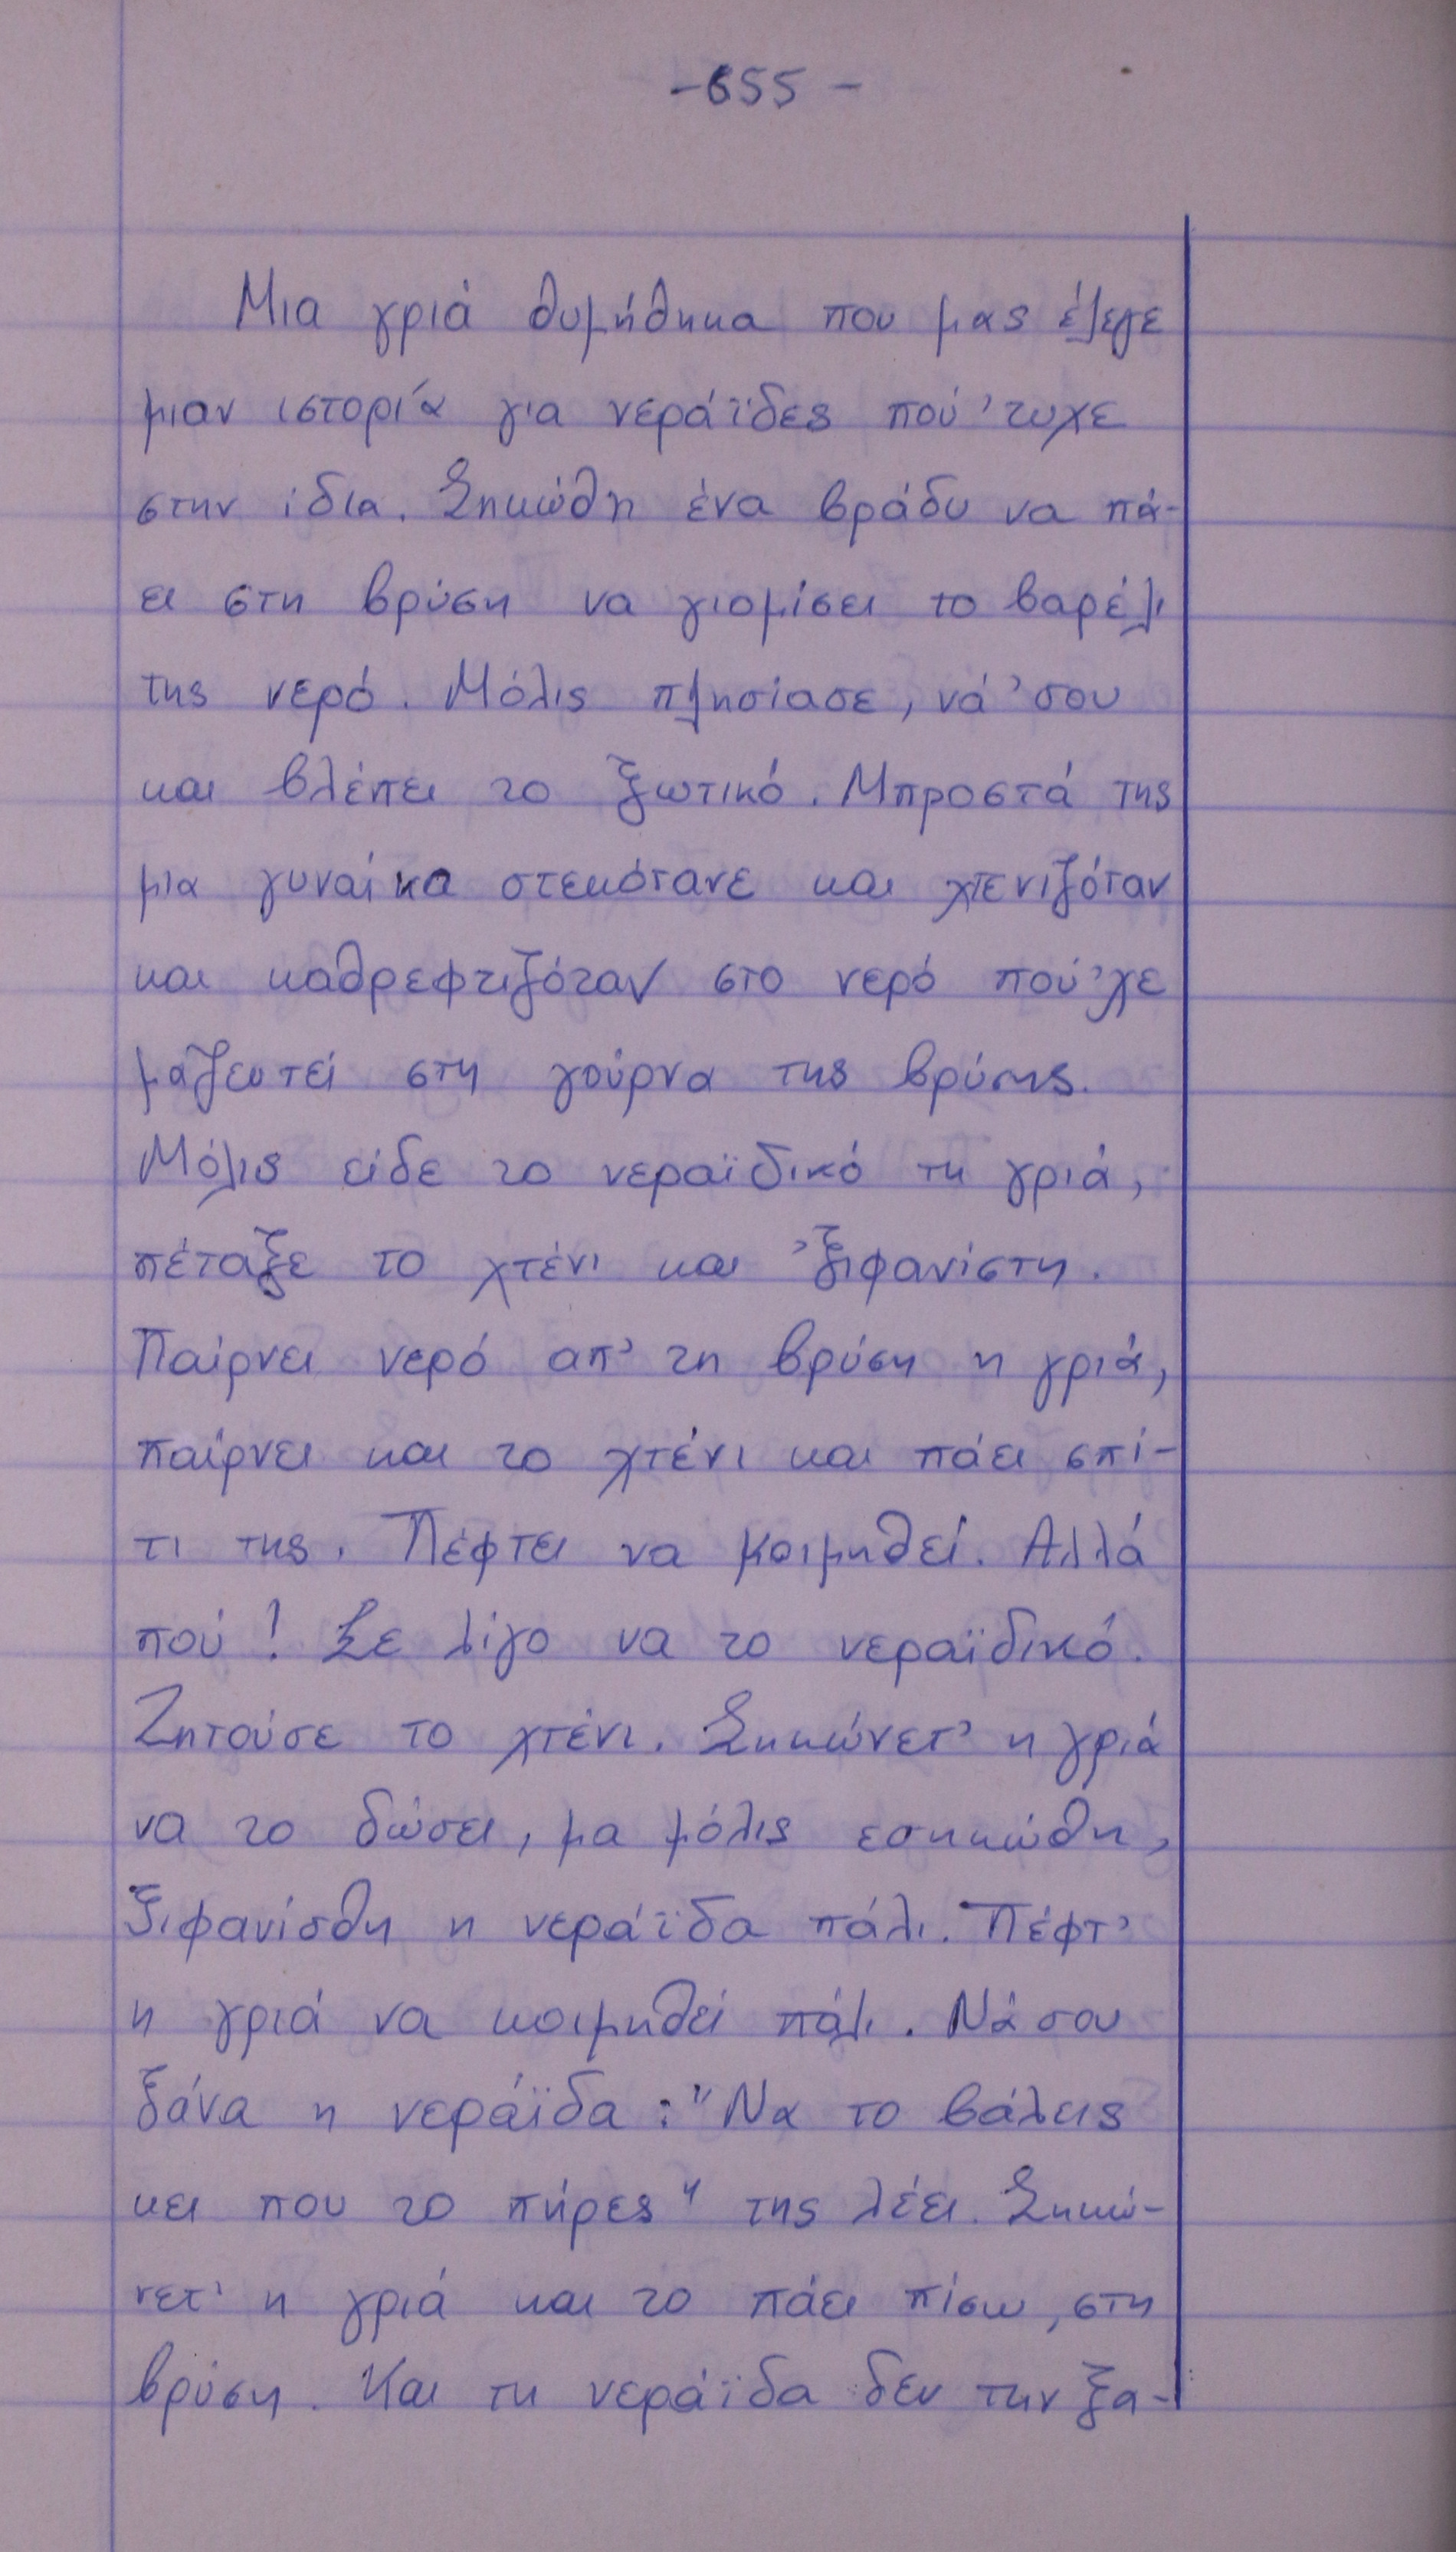 -655-
Μια γριά θυμήθηκα που μας έλεγε
μιαν ιστορία για νεράϊδες πού 'τυχε
στην ίδια. Σηκώθη ένα βράδυ να πά-
ει στη βρύση να γιομίσει το βαρέλι
της νερό. Μόλις πλησίασε, νά 'σου
και βλέπει το ξωτικό. Μπροστά της
μια γυναίκα στεκότανε και χτενιζόταν
και καθρεφτιζόταν στο νερό πού 'χε
μαζευτεί στη γούρνα της βρύσης.
Μόλις είδε το νεραϊδικό τη γριά,
πέταξε το χτένι και 'ξιφανίστη.
Παίρνει νερό απ' τη βρύση η γριά,
παίρνει και το χτένι και πάει σπί-
τι της. Πέφτει να κοιμηθεί. Αλλά
πού! Σε λίγο να το νεραϊδικό.
Ζητούσε το χτένι. Σηκώνετ' η γριά
να το δώσει, μα μόλις εσηκώθη,
ξιφανίσθη η νεράϊδα πάλι. Πέφτ'
η γριά να κοιμηθεί πάλι. Νά σου
ξάνα η νεράϊδα: "Να το βάλεις
κει που το πήρες" της λέει. Σηκώ-
νετ' η γριά και το πάει πίσω, στη
βρύση. Και τη νεράϊδα δεν την ξα-